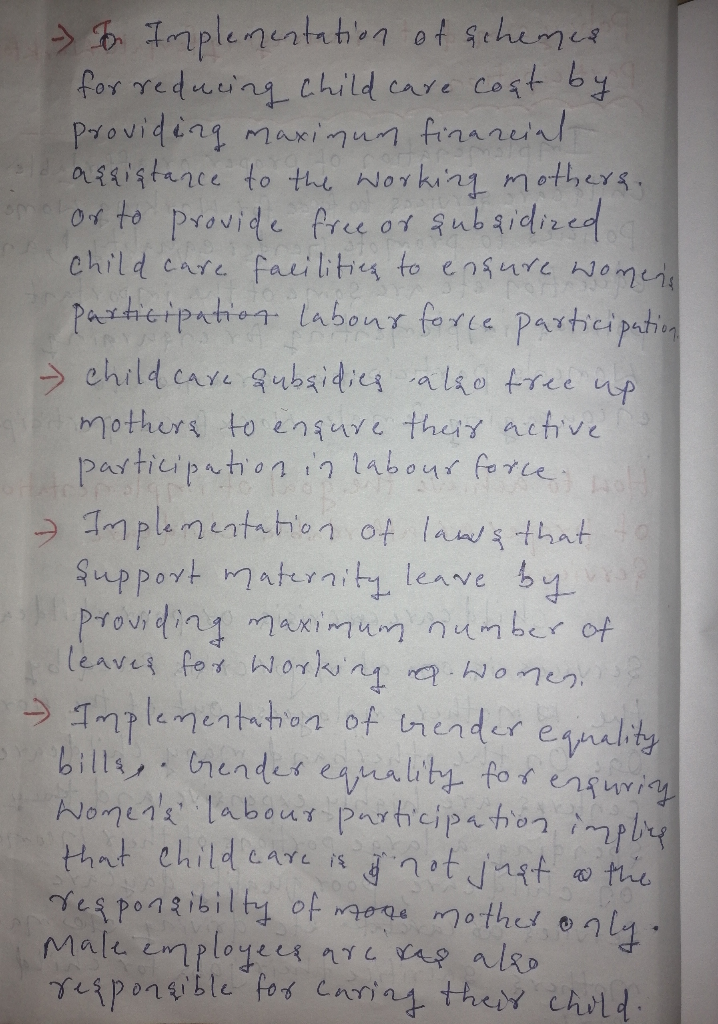 → Implementation of schemes
for reducing child care cost by
providing maximum financial
assistance to the working mothers.
or to provide free or subsidized
child care facilities to ensure women's
participation labour force participation
→ child care subsidies also free up
mothers to ensure their active
participation in labour force.
→ Implementation of laws that
support maternity leave by
providing maximum number of
leaves for working women.
→ Implementation of Gender equality
bills. Gender equality for ensuring
women's labour participation implies
that child care is not just the
responsibilty of mother only.
Male employees are also
responsible for caring their child.